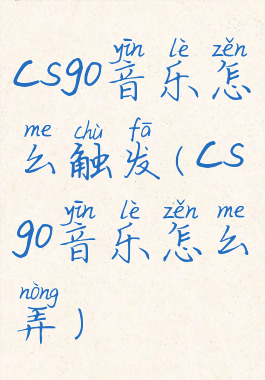 yīn lè zěn
CSgo音乐怎
me chù fā
么触发(CS
yīn lè zěn me
go音乐怎么
nòng
弄)